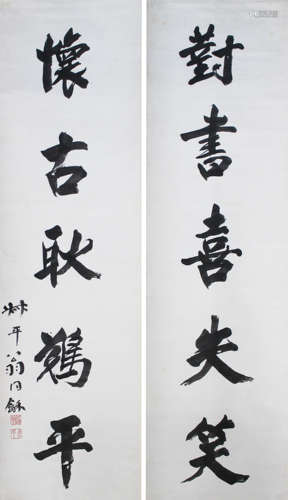 對書喜失笑
懷古耿難平
叔平翁同龢